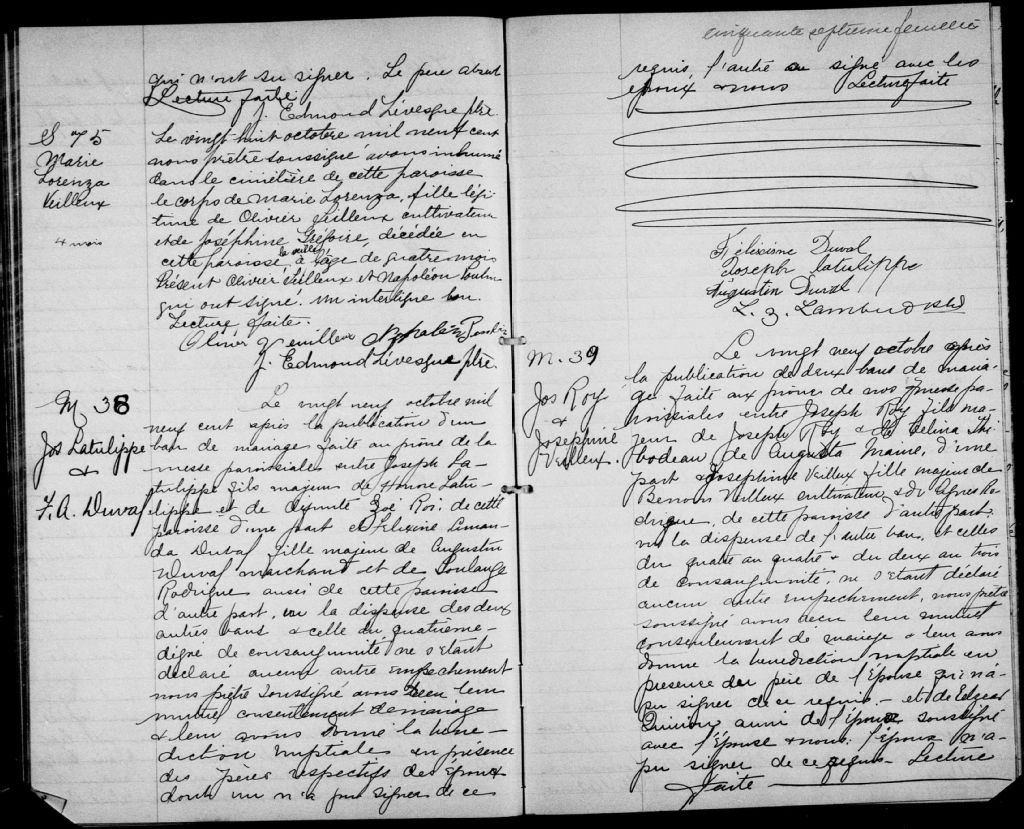 qui n'ont su signer. Le père absent
Lecture faite
J. Edmond Lévesque ptre
S 75
Marie
Lorenza
Veilleux
4 mois
Le vingt huit octobre mil neuf cent
nous prêtre soussigné avons inhumé
dans le cimetière de cette paroisse
le corps de Marie Lorenza, fille légi-
time de Olivier Veilleux cultivateur
et de Joséphine Grégoire, décédée en
cette paroisse la veille à l'âge de quatre mois
Présent Olivier Veilleux et Napoléon
qui ont signé. Un interligne bon.
Lecture faite.
Olivier Veilleux
J. Edmond Lévesque ptre.
M 38
Jos Latulippe
&
F. A. Duval
Le vingt neuf octobre mil
neuf cent après la publication d'un
ban de mariage faite au prône de la
messe paroissiale entre Joseph La-
tulippe fils majeur de Honoré Latu-
lippe et de défunte Zoé Roi. de cette
paroisse d'une part et Félixine
da Duval fille majeur de Augustin
Duval marchand et de Soulange
Rodrigue aussi de cette paroisse
d'autre part, vu la dispense des deux
autres bans & celle du quatrième
degré de consanguinité ne s'étant
déclaré aucun autre empêchement
nous prêtre soussigné avons reçu leur
mutuel consentement de mariage
& leur avons donné la béné-
diction nuptiale en présence
des pères respectifs des époux
dont un n'a pu signer de ce
cinquante septième feuillet
requis, l'autre a signé avec les
époux & nous Lecture faite
Félixine Duval
Joseph Latulippe
Augustin Duval
L. Z. Lambert
M. 39
Jos Roy
&
Josephine
Veilleux.
Le vingt neuf octobre après
la publication de deux bans de maria-
ge faite aux prônes de nos messes pa-
roissiales entre Joseph Roy fils ma-
jeur de Joseph Roy & de Delina Thi-
bodeau de Augusta Maine, d'une
part & Josephine Veilleux fille majeure de
Benoni Veilleux cultivateur & de Agnes Ro-
drigue, de cette paroisse d'autre part.
vu la dispense de l'autre ban, et celles
du quatre au quatre & du deux au trois
de consanguinité, ne s'étant déclaré
aucun autre empechement, nous prêtre
soussigné avons reçu leur mutuel
consentement de mariage & leur avons
donné la benediction nuptiale en
presence du père de l'épouse qui n'a
pu signer de ce requis. et de Edgar
Quirion ami de l'époux soussigné
avec l'épouse & nous; l'époux n'a
pu signer de ce requis. Lecture
faite